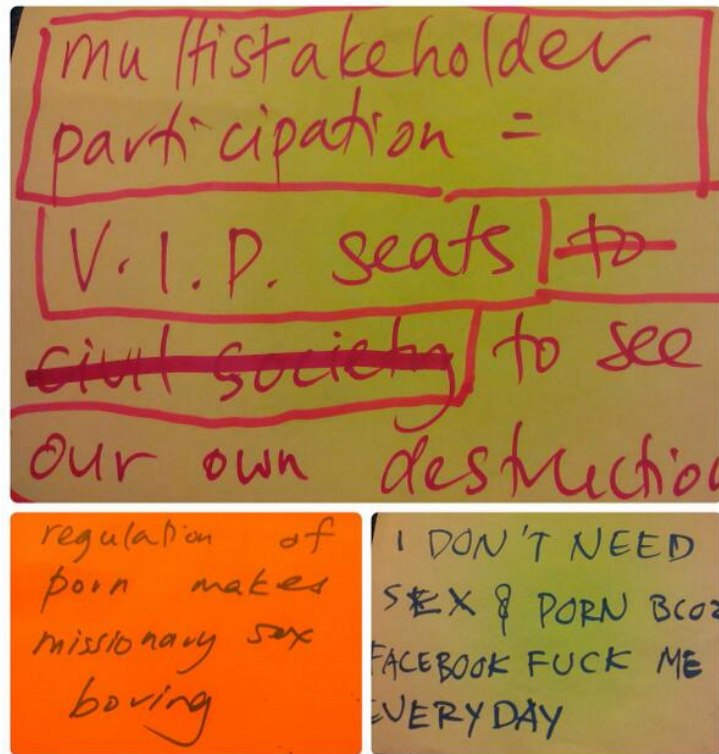 multistakeholder
participation =
V.I.P. seats to
civil society to see
our own destruction
regulation of
porn makes
missionary sex
boring
I DON'T NEED
SEX & PORN BCOZ
FACEBOOK FUCK ME
EVERYDAY